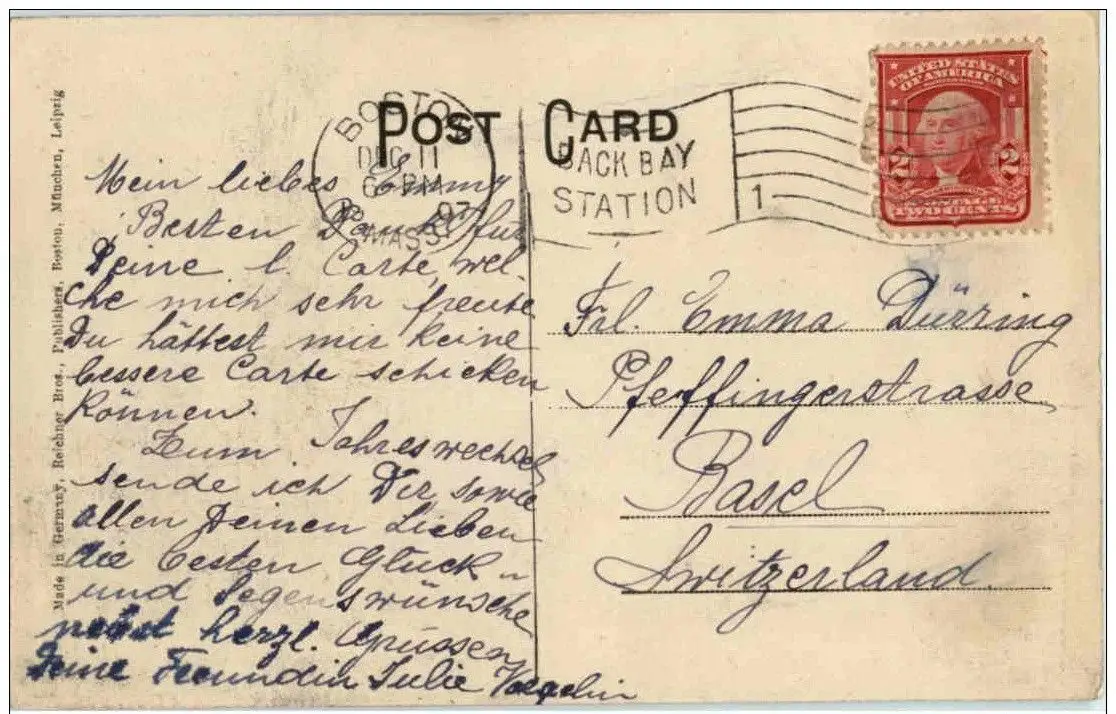 Made in Germany, Reichner Bros., Publishers, Boston, München, Leipzig
POST CARD
BOSTON
DEC 11
6 PM
07
MASS.
BACK BAY
STATION
1
UNITED STATES
OF AMERICA
2 2
Mein liebes Emmy
Besten Dank für
Deine l. Carte, wel-
che mich sehr freute
Du hättest mir keine
bessere Carte schicken
können.
Zum Jahreswechsel
sende ich Dir sowie
allen Deinen Lieben
die besten Glück-
und Segenswünsche
nebst herzl. Grüssen
Deine Freundin Julie Voegelin
Frl. Emma Dürring
Pfeffingerstrasse
Basel
Switzerland.